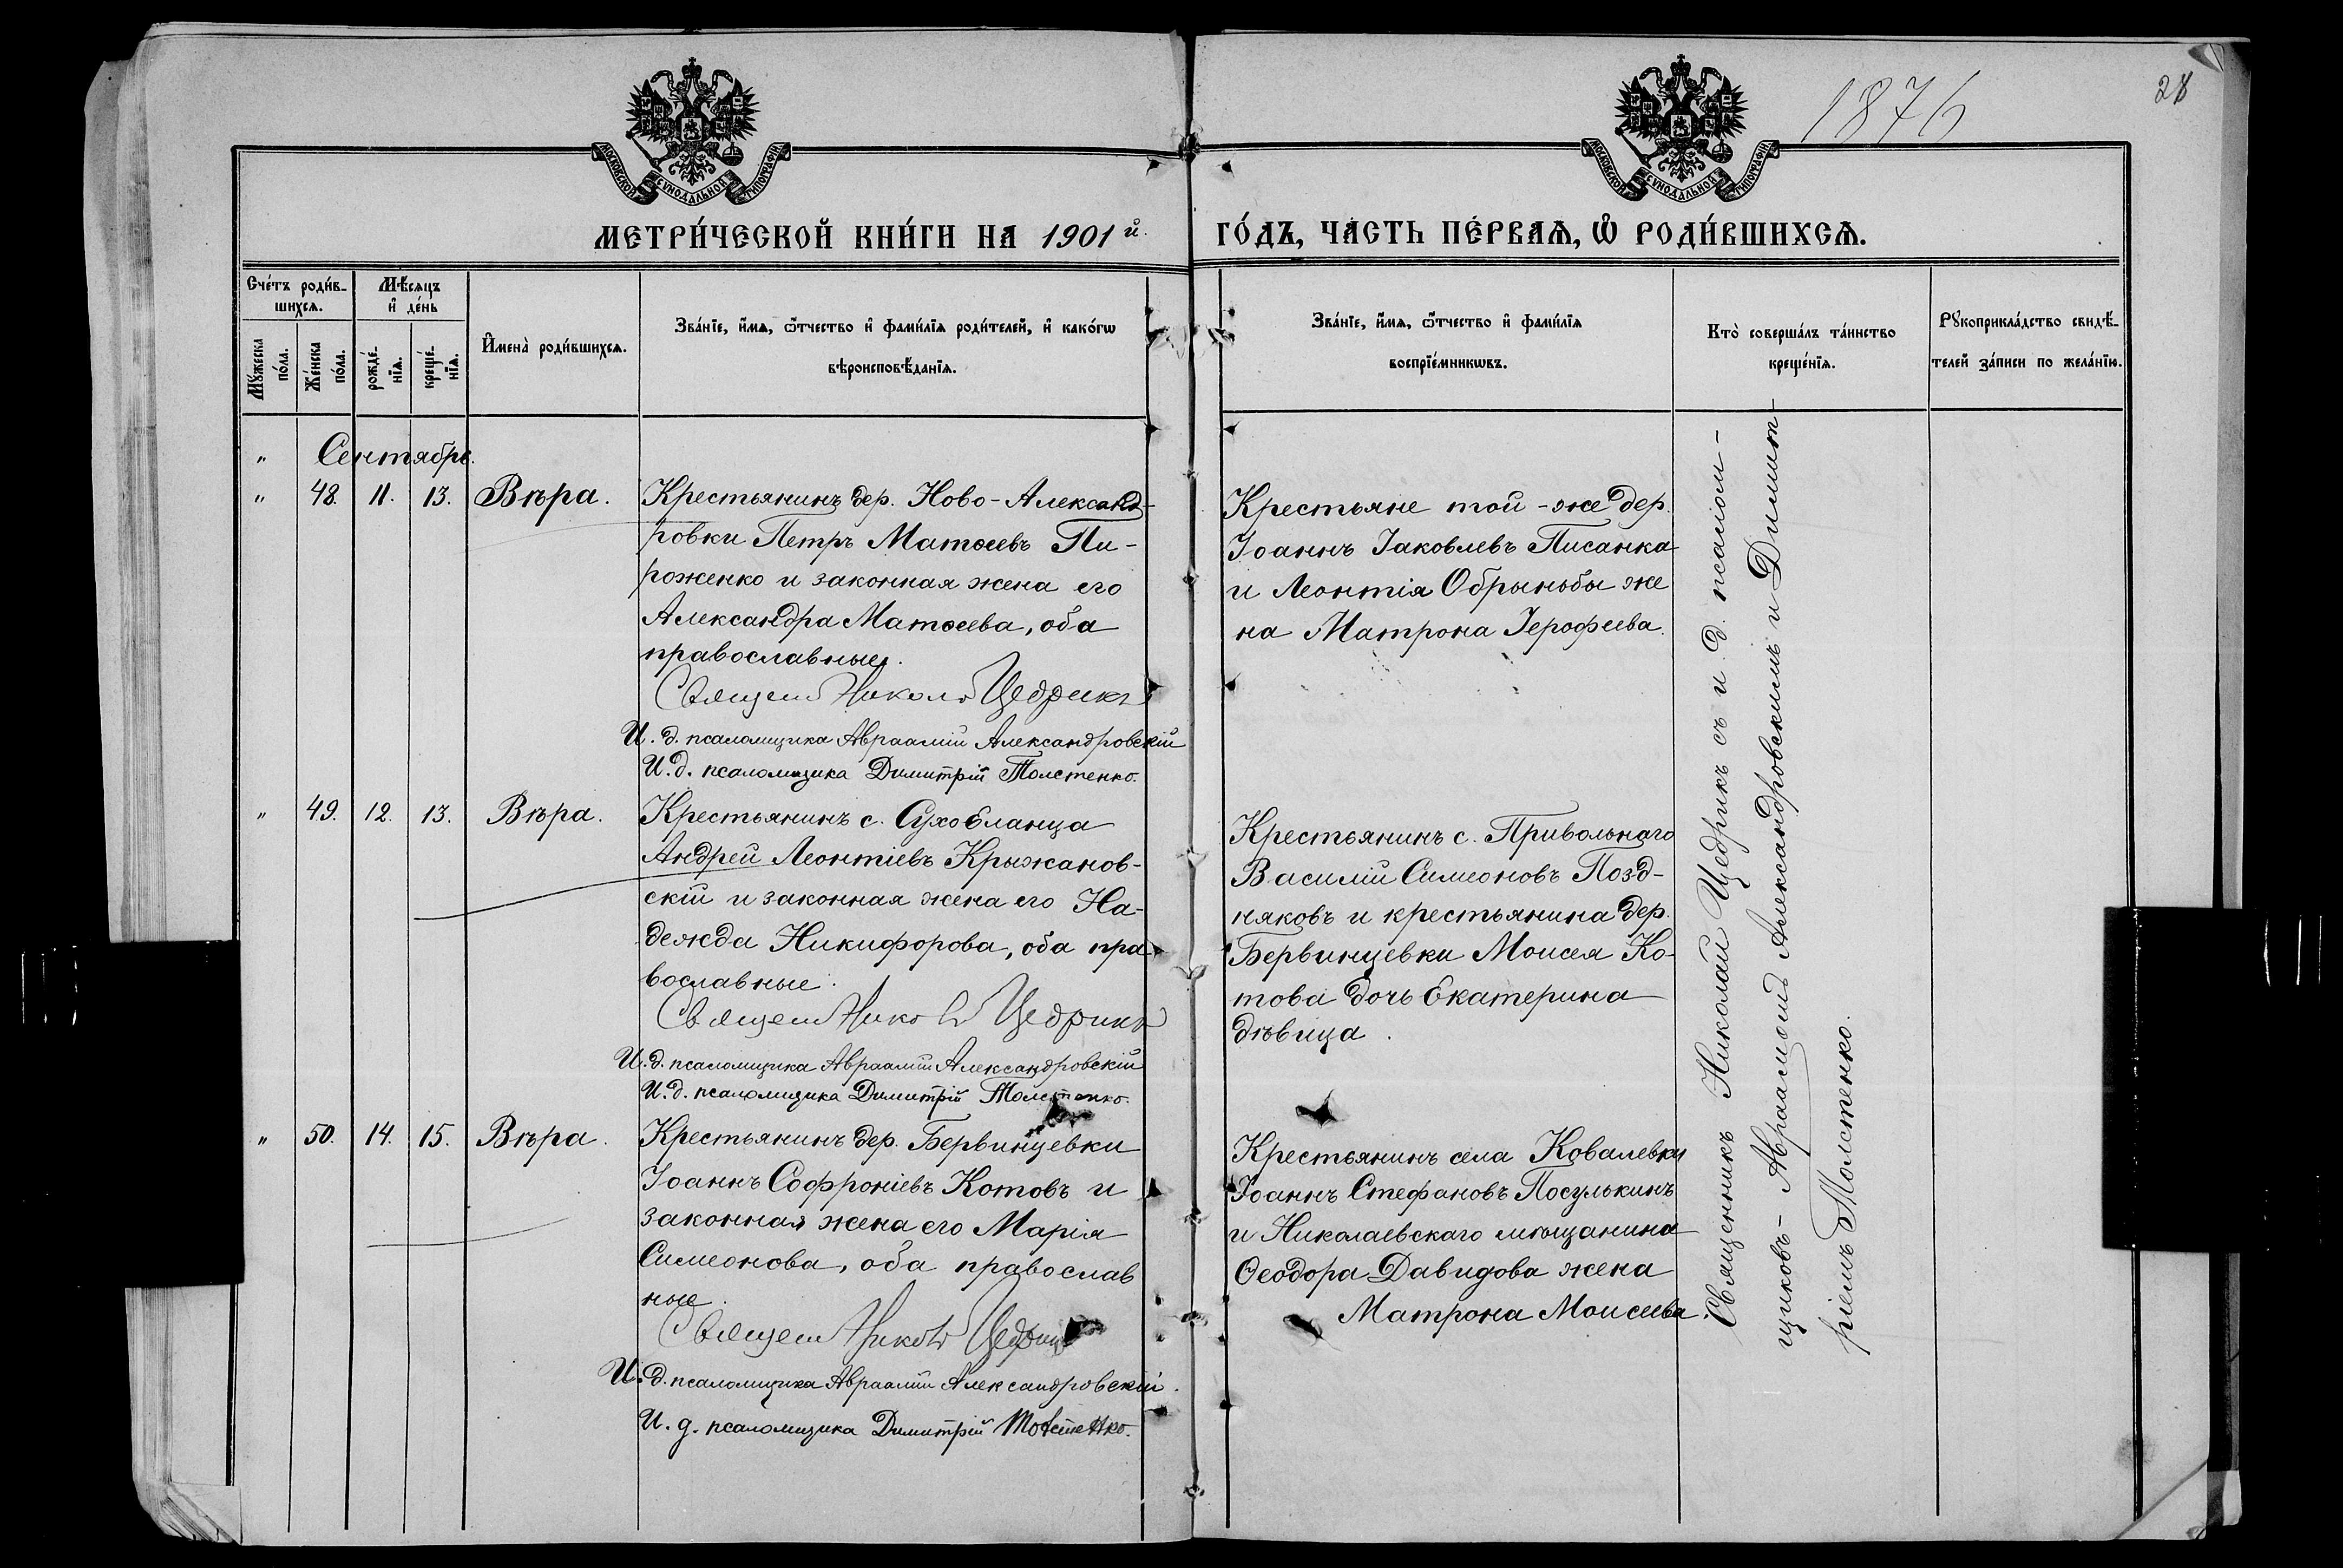 1876
28
МОСКОВСКОЙ СѴНОДАЛЬНОЙ ТИПОГРАФІИ
МОСКОВСКОЙ СѴНОДАЛЬНОЙ ТИПОГРАФІИ
МЕТРИ́ЧЕСКОЙ КНИ́ГИ НА 1901й.
ГО́ДЪ, ЧА́СТЬ ПЕ́РВАѦ, Ѡ҆ РОДИ́ВШИХСѦ.
Сче́тъ роди́в-
шихсѧ.
Мꙋ́жеска
по́ла.
Же́нска
по́ла.
Мѣ́сѧцъ
и҆ де́нь
рожде́-
нїѧ.
креще́-
нїѧ.
И҆мена̀ роди́вшихсѧ.
Зва́нїе, и҆́мѧ, ѻ҆́тчество и҆ фами́лїѧ роди́телей, и҆ како́гѡ
вѣроисповѣ́данїѧ.
Зва́нїе, и҆́мѧ, ѻ҆́тчество и҆ фами́лїѧ
воспрїе́мникѡвъ.
Кто̀ соверша́лъ та́инство
креще́нїѧ.
Рꙋкоприкла́дство свидѣ́-
телей за́писи по жела́нїю.
" Сентябрь.
" 48. 11. 13. Вѣра.
Крестьянинъ дер. Ново-Александ-
ровки Петръ Матѳеевъ Пи-
роженко и законная жена его
Александра Матѳеева, оба
православные.
Священ Никола Цедрикъ
И. д. псаломщика Авраамій Александровскій
И. д. псаломщика Димитрій Толстенко.
Крестьяне той-же дер.
Іоаннъ Іаковлевъ Писанка
и Леонтія Обрыньбы же
на Матрона Іерофеева.
" 49. 12. 13. Вѣра.
Крестьянинъ с. Сухоеланца
Андрей Леонтіевъ Крыжанов-
скій и законная жена его На-
дежда Никифорова, оба пра-
вославные.
Священ Цедрикъ
И. д. псаломщика Авраамій Александровскій
И. д. псаломщика Димитрій Толстенко.
Крестьянинъ с. Привольнаго
Василій Симеоновъ Позд-
няковъ и крестьянина дер.
Бервинцевки Моисея Ко-
това дочь Екатерина
дѣвица.
" 50. 14. 15. Вѣра.
Крестьянинъ дер. Бервинцевки
Іоаннъ Софроніевъ Котовъ и
законная жена его Марія
Симеонова, оба православ
ные.
Священ Цедрикъ
И. д. псаломщика Авраамій Александровскій.
И. д. псаломщика Димитрій Толстенко.
Крестьянинъ села Ковалевки
Іоаннъ Стефановъ Посулькинъ
и Николаевскаго мѣщанина
Ѳеодора Давидова жена
Матрона Моисеева.
Священникъ Николай Цедрикъ съ и. д. псалом-
щиковъ - Авраамомъ Александровскимъ и Димит-
ріемъ Толстенко.